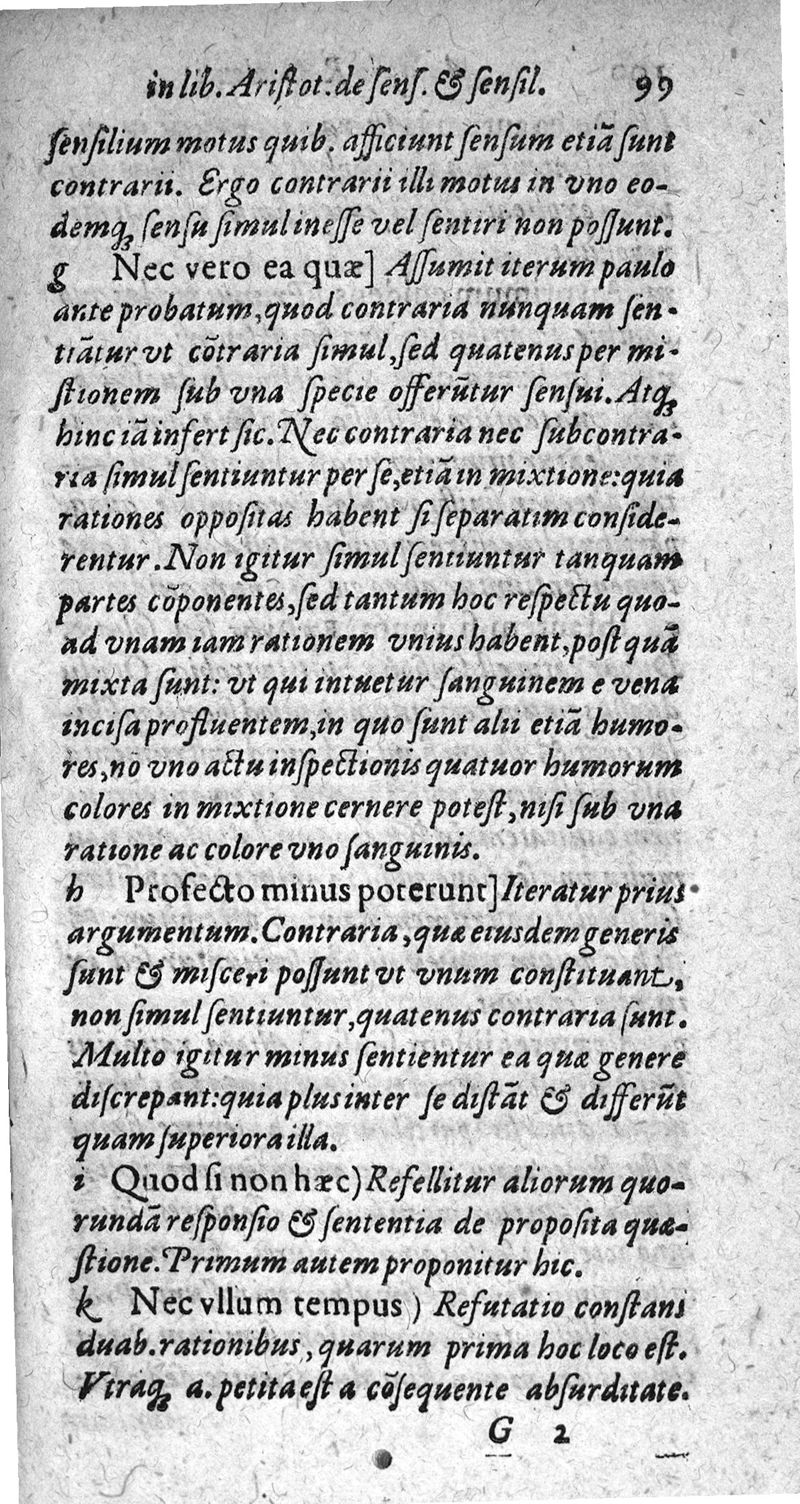 in lib. Aristot: de sens. & sensil. 99
sensilium motus quib. afficiunt sensum etiã sunt
contrarii. Ergo contrarii illi motus in vno eo-
demq; sensu simul inesse vel sentiri non possunt.
g Nec vero ea quæ] Assumit iterum paulo
ante probatum, quod contraria nunquam sen-
tiãtur vt cõtraria simul, sed quatenus per mi-
stionem sub vna specie offerũtur sensui. Atq;
hinc iã infert sic. Nec contraria nec subcontra-
ria simul sentiuntur per se, etiã in mixtione: quia
rationes oppositas habent si separatim conside-
rentur. Non igitur simul sentiuntur tanquam
partes cõponentes, sed tantum hoc respectu quo-
ad vnam iam rationem vnius habent, post quã
mixta sunt: vt qui intuetur sanguinem e vena
incisa profluentem, in quo sunt alii etiã humo-
res, nõ vno actu inspectionis quatuor humorum
colores in mixtione cernere potest, nisi sub vna
ratione ac colore vno sanguinis.
h Profecto minus poterunt] Iteratur prius
argumentum. Contraria, quæ eiusdem generis
sunt & misceri possunt vt vnum constituant,
non simul sentiuntur, quatenus contraria sunt.
Multo igitur minus sentientur ea quæ genere
discrepant: quia plus inter se distãt & differũt
quam superiora illa.
i Quod si non hæc) Refellitur aliorum quo-
rundã responsio & sententia de proposita quæ-
stione. Primum autem proponitur hic.
k Nec vllum tempus) Refutatio constans
duab. rationibus, quarum prima hoc loco est.
Vtraq; a. petita est a cõsequente absurditate.
G 2